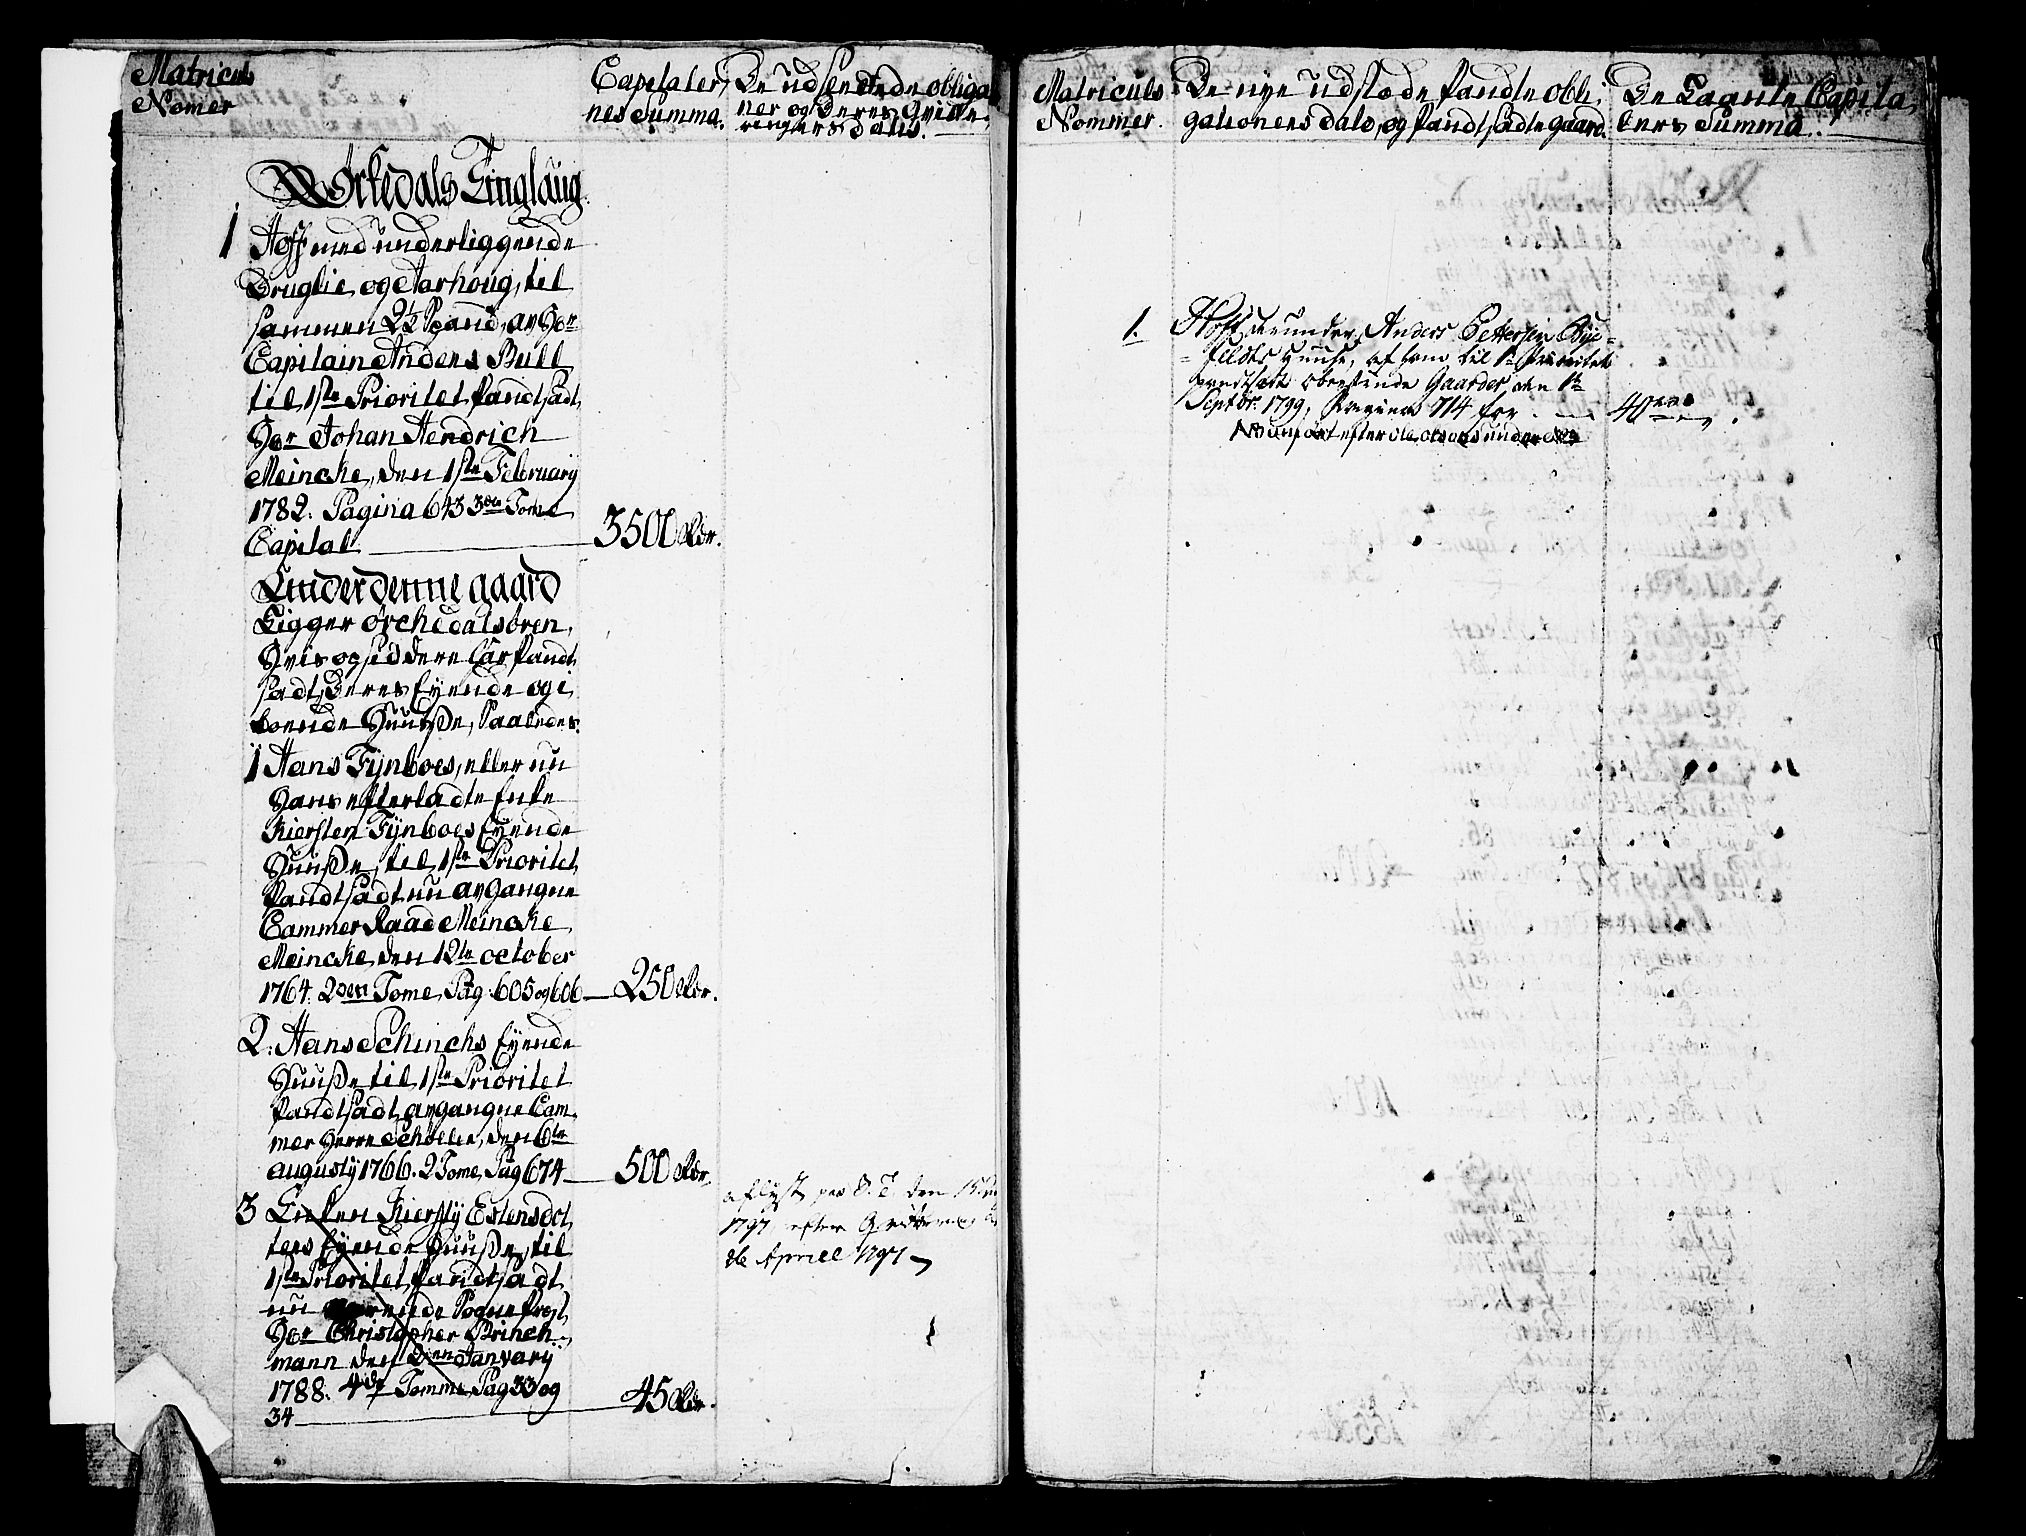 Matricul
Nomer
Capitaler,
nes Summa.
De udstedede obliga
ner og Deres Qvite
ringers Dato.
Ørkedals Tinglaug.
1 Hoff med underliggende
Druglie, og Aarhoug, til
sammen 2½ Spand, av Hr
Capitain Anders Bull
til 1ste Prioritet Pandtsadt,
Hr Johan Hendrich
Meincke, den 1ste February
1782. Pagina 643 3die Tome
Capital 3500 Rdr.
Under denne gaard
Ligger Orchedalsøren,
Hvis og siddere har Pandt
sadt, Deres Eyende og i
boende Huuse, Saaledes.
1 Hans Fynboes, eller nu
Hans efterladte Enke
Kiersten Fynboes Eyende
Huuse, til 1ste Prioritet,
Pandtsadt nu avgangne
Cammer Raad Meincke
Meincke, den 12te october
1764. 2den Tome, Pag: 605 og 606 250 Rdr.
2. Hans Schinchs Eyende
Huuse til 1ste Prioritet
Pandtsadt, avgangne Cam-
mer Herre Schøller, den 6te
augusty 1766. 2 Tome, Pag 674 500 Rdr.
3 Enken Kiersty Estensdot
ters Eyende Huuse, til
1ste Prioritet, Pandtsadt
nu værende Sogne Prest
Hr Christopher Brinch-
mann den 2den Januarij
1788. 4de Tomme, Pag 33 og
34 45 Rdr.
aflyst paa S. T. den 15
1797, efter Qvittering
26 Aprill 1797
Matriculs
Nommer.
De nye udstæde Pandte obli-
gationers dato, og Pandtsadte gaard.
De Laante Capita
lers Summa.
1. Hoff med under Anders Pettersen Bye-
feldts Huuse, af ham til 1te Prioritet
pandtsatt Gaarder den 1te
Septbr. 1799, Pagina 714 for 40